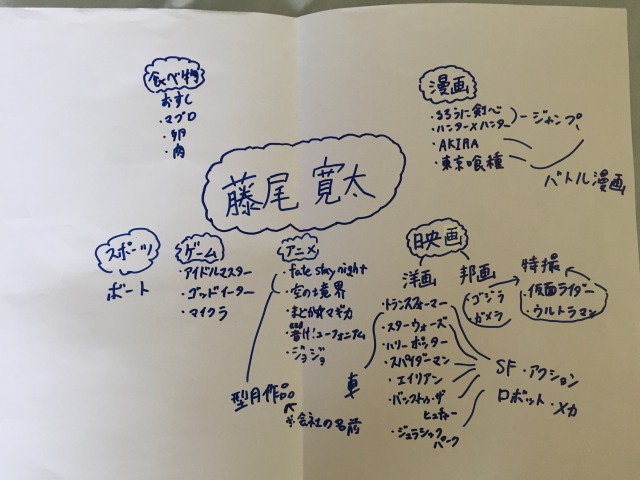 食べ物
おすし
・マグロ
・卵
・肉
漫画
・るろうに剣心
・ハンター×ハンター
ジャンプ
・AKIRA
・東京喰種
バトル漫画
藤尾 寛太
スポーツ
ボート
ゲーム
・アイドルマスター
・ゴッドイーター
・マイクラ
アニメ
・fate stay night
・空の境界
・まどか☆マギカ
・響け!ユーフォニアム
・ジョジョ
型月作品
※会社の名前
映画
洋画
・トランスフォーマー
・スターウォーズ
・ハリーポッター
・スパイダーマン
・エイリアン
・バックトゥザ
ヒュチャー
・ジュラシック
パーク
車
邦画
・ゴジラ
・ガメラ
特撮
・仮面ライダー
・ウルトラマン
SF・アクション
ロボット・メカ